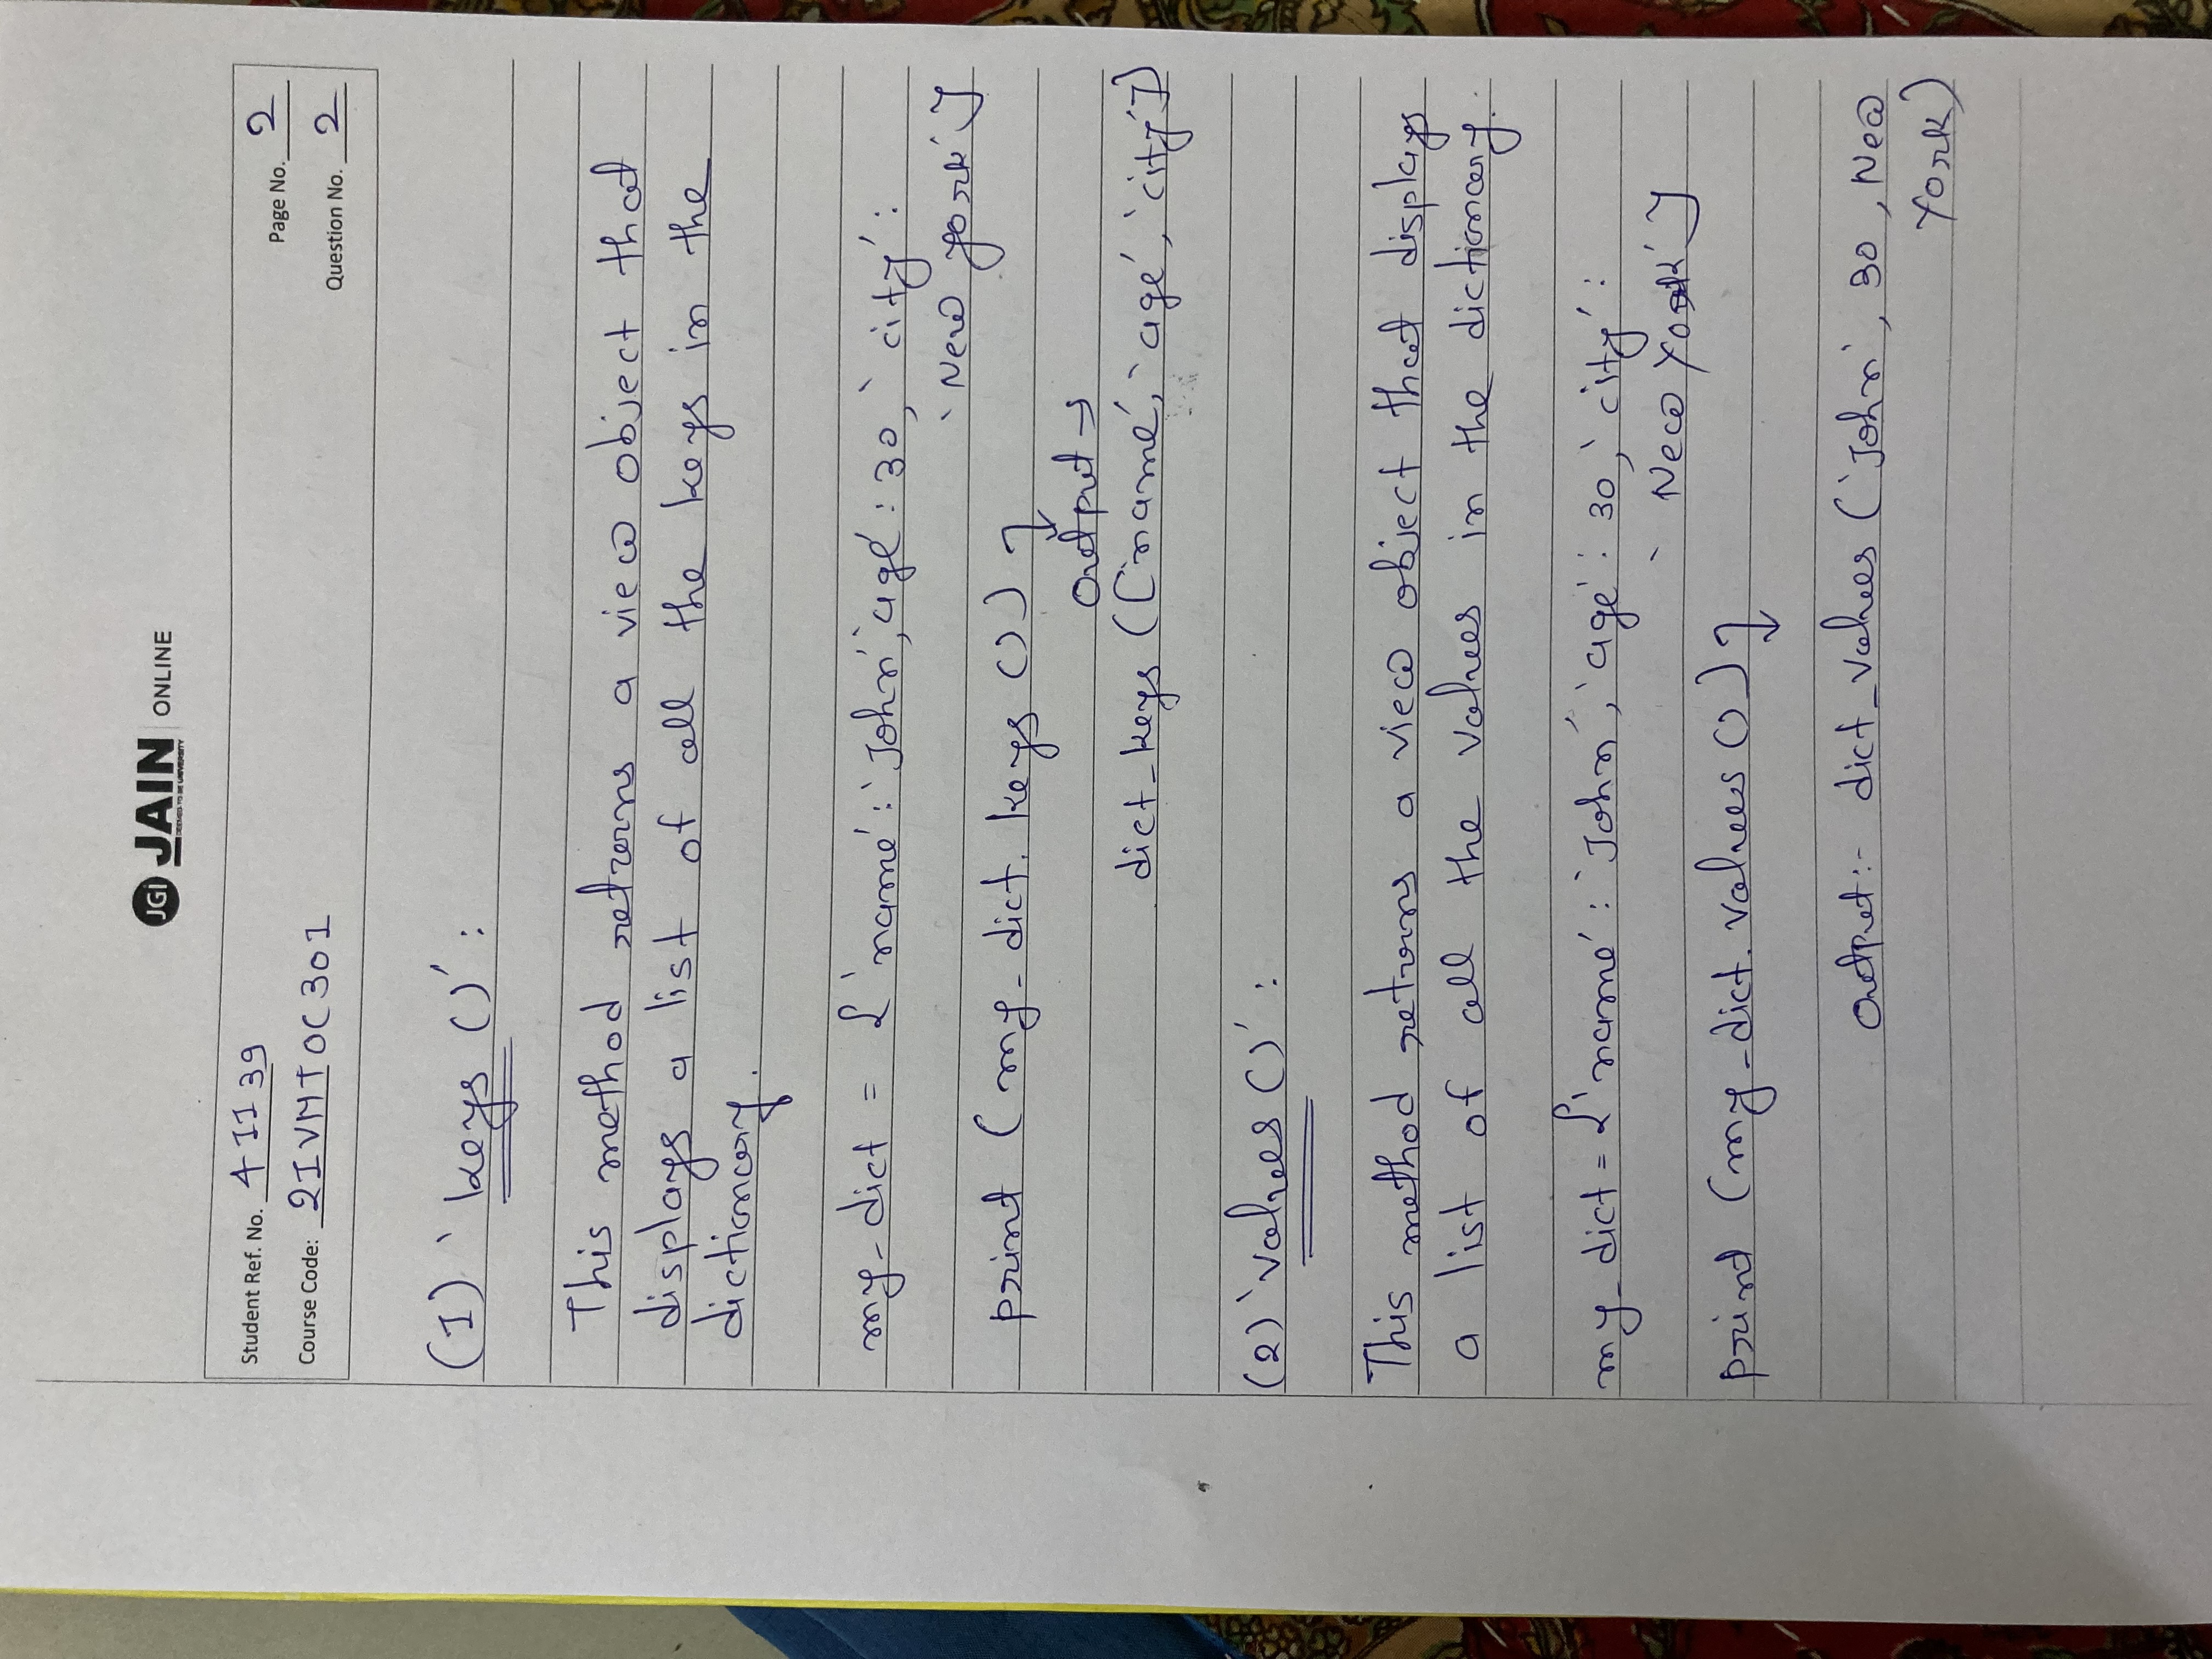 JGI JAIN ONLINE
DEEMED-TO-BE UNIVERSITY
Student Ref. No. 411139
Page No. 2
Course Code: 21VMTOC301
Question No. 2
(1) 'keys ()' :
This method returns a view object that
displays a list of all the keys in the
dictionary.
my_dict = {'name':'John','age':30, 'city':
'New york'}
print (my_dict. keys ())
output →
dict_keys (['name', 'age', 'city'])
(2) 'values ()' :
This method returns a view object that displays
a list of all the values in the dictionary.
my_dict = {'name': 'John', 'age': 30, 'city':
'New York'}
print (my_dict. values ())
output:- dict_values ('John', 30, New
York)